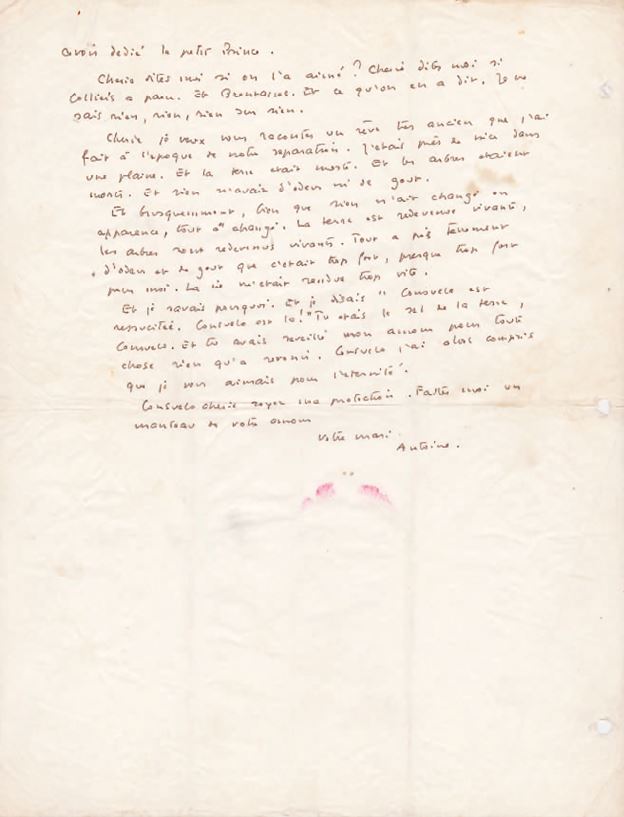 avoir dedié le petit Prince.
Cherie dites moi si on l'a aimé? Cherie dites moi si
Collier's a paru. Et Brentano's. Et ce qu'on en a dit. Je ne
sais rien, rien, rien sur rien.
Cherie je veux vous raconter un rêve très ancien que j'ai
fait à l'epoque de notre separation. J'etais près de vous dans
une plaine. Et la terre etait morte. Et les arbres etaient
morts. Et rien n'avait d'odeur ni de gout.
Et brusquement, bien que rien n'ait changé en
apparence, tout a changé. La terre est redevenue vivante,
les arbres sont redevenus vivants. Tout a pris tellement
d'odeur et de gout que c'etait trop fort, presque trop fort
pour moi. La vie m'etait rendue trop vite.
Et je savais pourquoi. Et je disais " Consuelo est
ressucitée. Consuelo est là!" Tu etais le sel de la terre,
Consuelo. Et tu avais reveillé mon amour pour toute
chose rien qu'a revenir. Consuelo j'ai alors compris
que je vous aimais pour l'eternité.
Consuelo cherie soyez ma protection. Faites moi un
manteau de votre amour
Votre mari
Antoine.